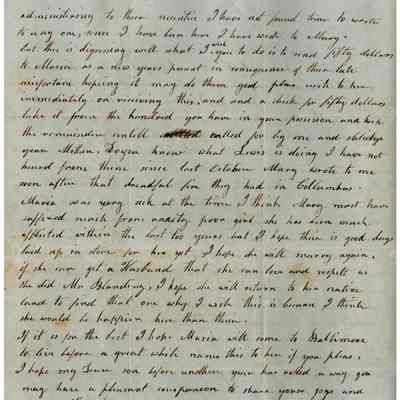 administering to their necessities I have not found time to write
to any one, since I have been here I have wrote to Mary-
but this is digressing well what I wish you to do is to send fifty dollars
to Maria as a new years present in consequence of their late
misfortune hoping it may do them good please write to her
immediately on receiving this, and and a check for fifty dollars
take it from the hundred you have in your possession and keep
the remainder untill called for by me and obliedge
your Mother. Do you know what Lewis is doing I have not
heard from them since last October Mary wrote to me
soon after that dreadful fire they had in Collumbus.
Maria was very sick at the time I think Mary must have
suffered much from anxiety poor girl she has been much
afflicted within the last two years but I hope there is good days
laid up in store for her yet I hope she will marry again,
if she can get a Husband that she can love and respect as
she did Mr Blanding, I hope she will return to her native
land to find that one why I wish this is because I think
she would be happier here than there.
If it is for the best I hope Maria will come to Baltimore
to live before a great while name this to her if you please,
I hope my Dear son before another year has rolled a way you
may have a pleasant companion to share your joys and